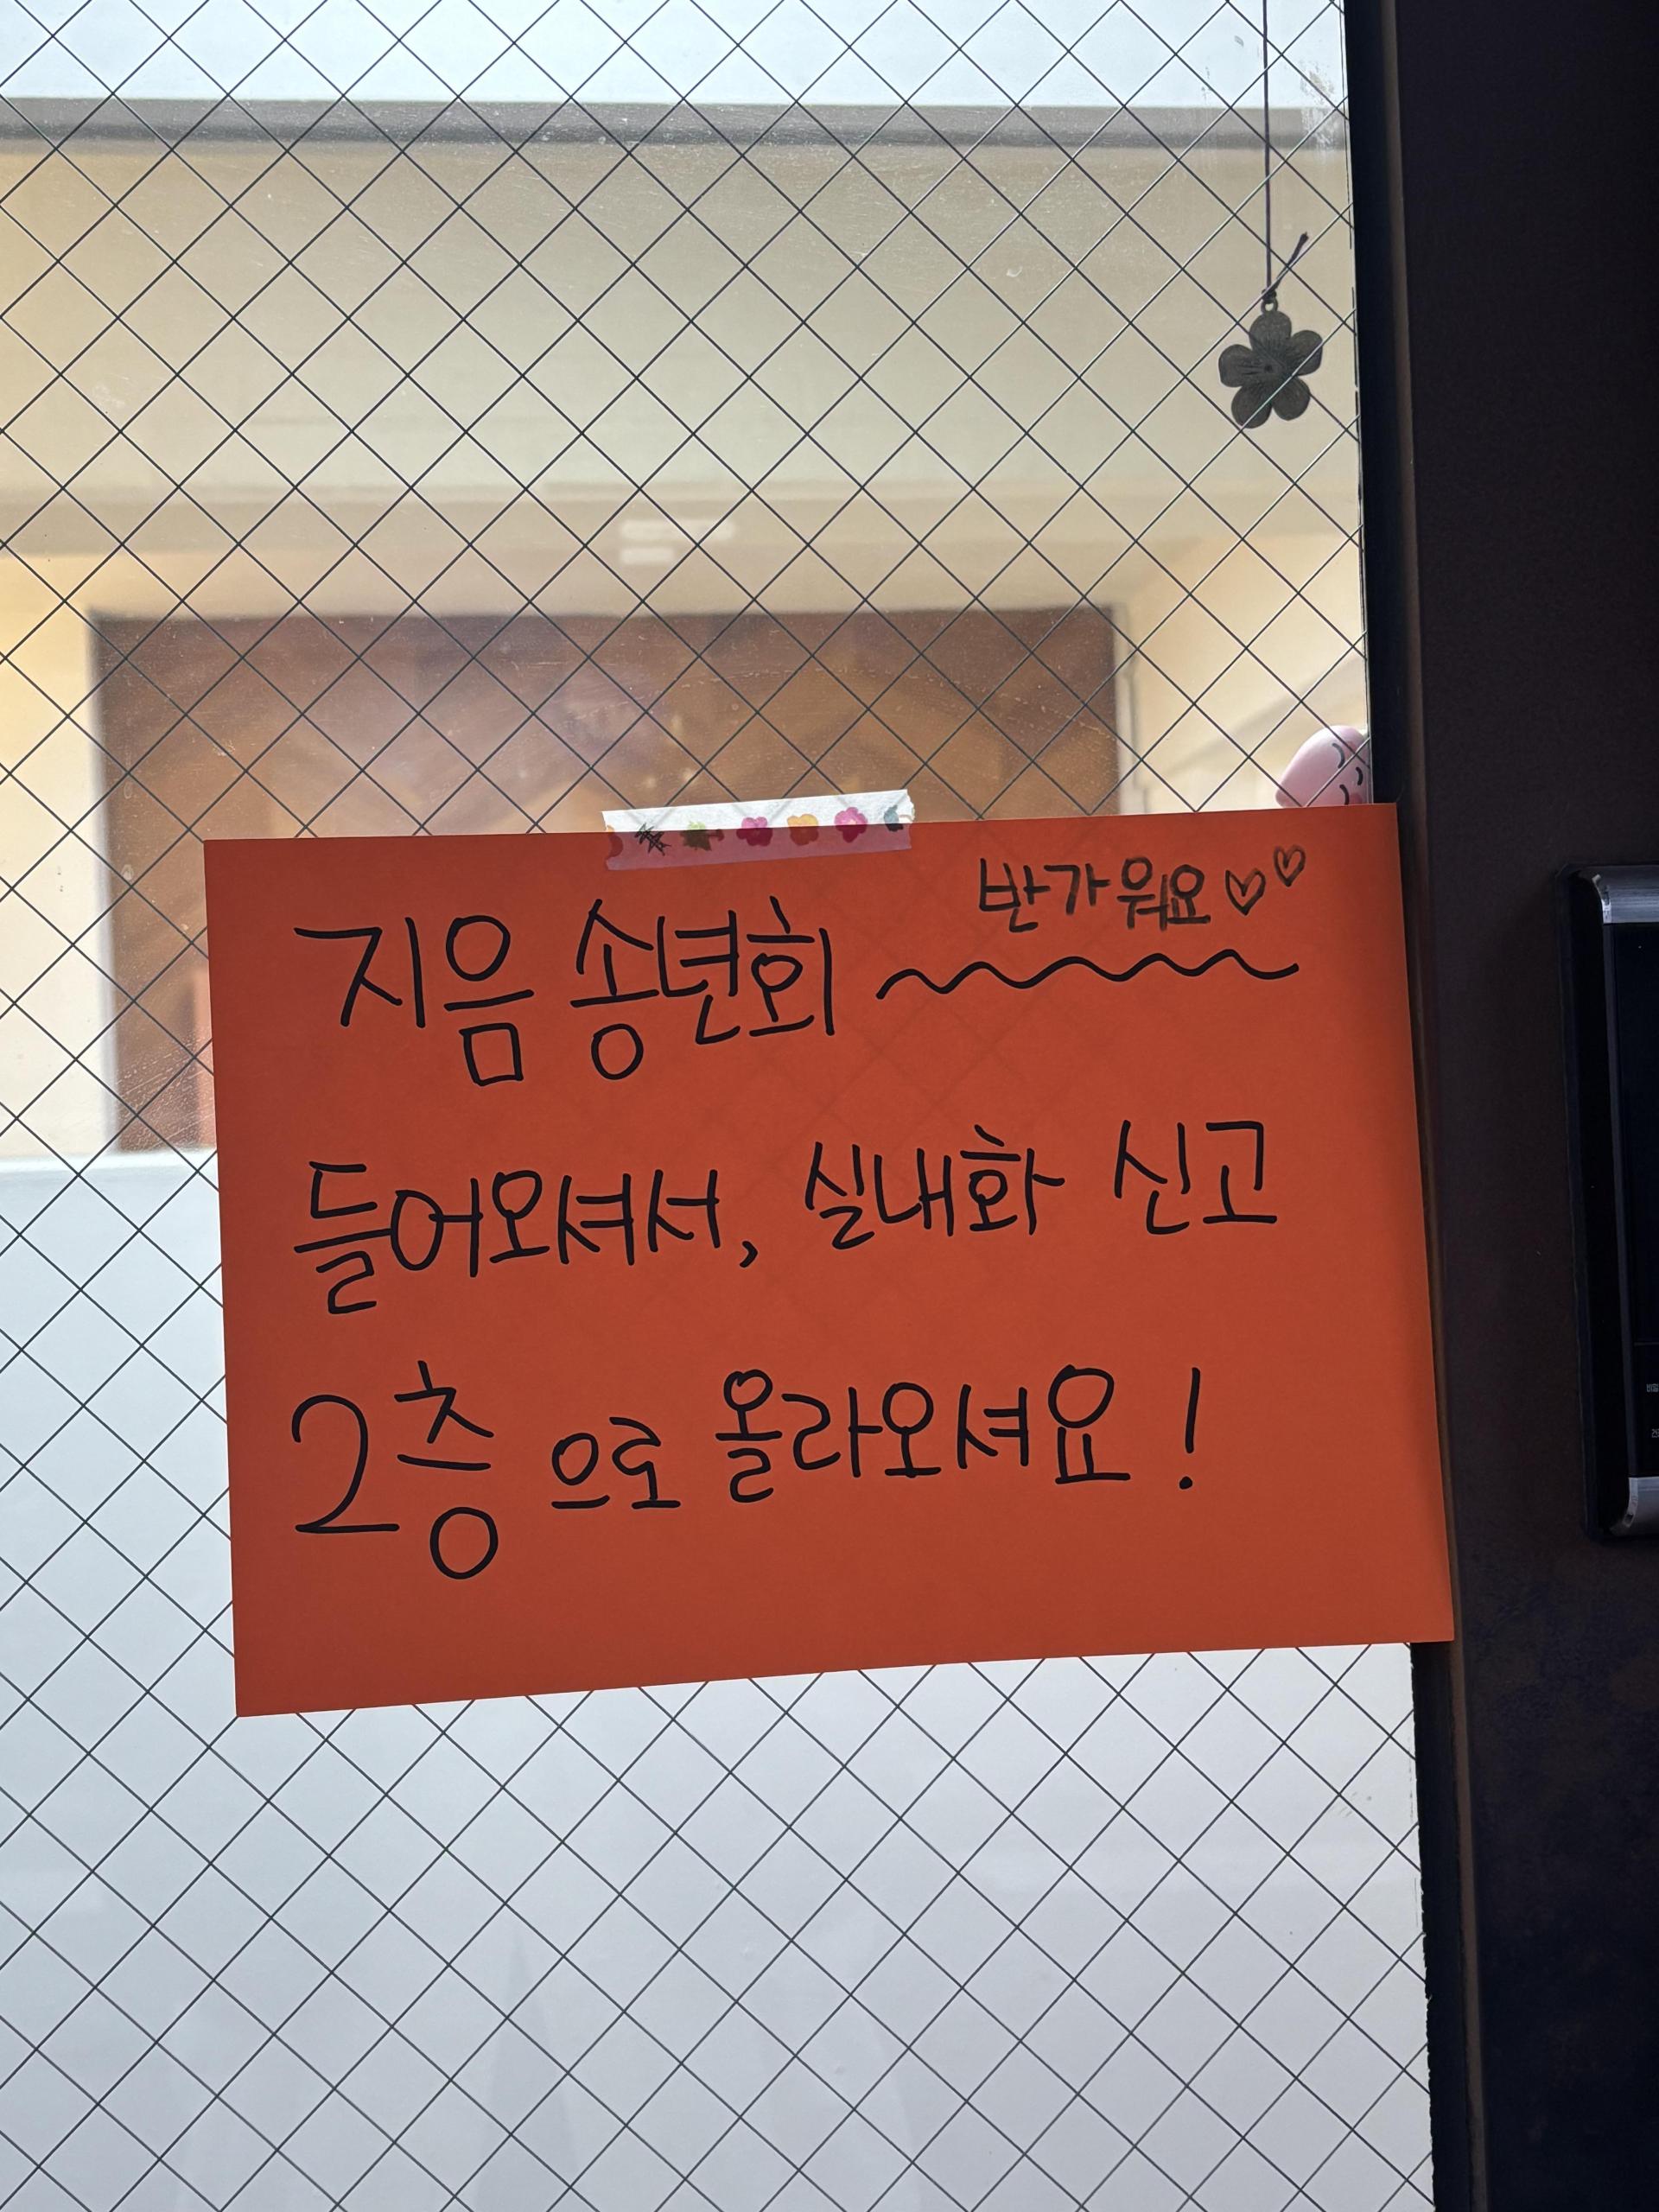 반가워요♡♡
지음 송년회 ~
들어오셔서, 실내화 신고
2층으로 올라오셔요!